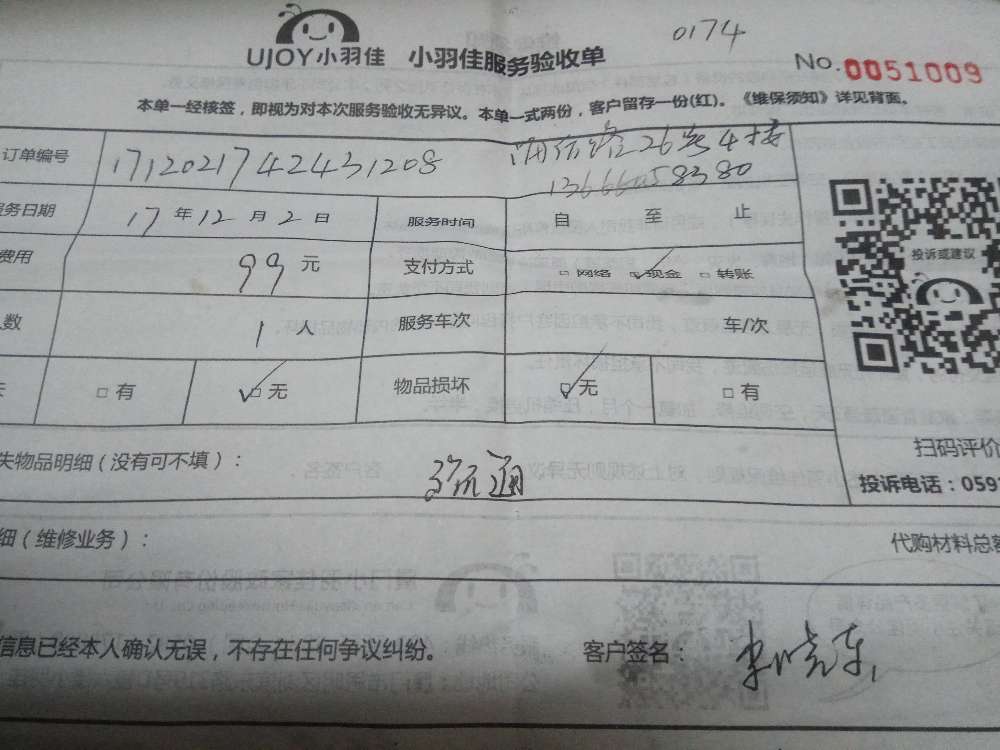 0174
UJOY小羽佳 小羽佳服务验收单 No.0051009
本单一经核签，即视为对本次服务验收无异议。本单一式两份，客户留存一份(红)。《维保须知》详见背面。
订单编号 171202174242431208 26 4楼
服务日期 17 年 12 月 2 日 服务时间 自 至 止
费用 99 元 支付方式 □网络 ☑现金 □转账
人数 1 人 服务车次 车/次
□有 ☑无 物品损坏 ☑无 □有
投诉或建议
扫码评价
失物品明细（没有可不填）： 疏通
投诉电话：059
细（维修业务）： 代购材料总
信息已经本人确认无误，不存在任何争议纠纷。 客户签名：